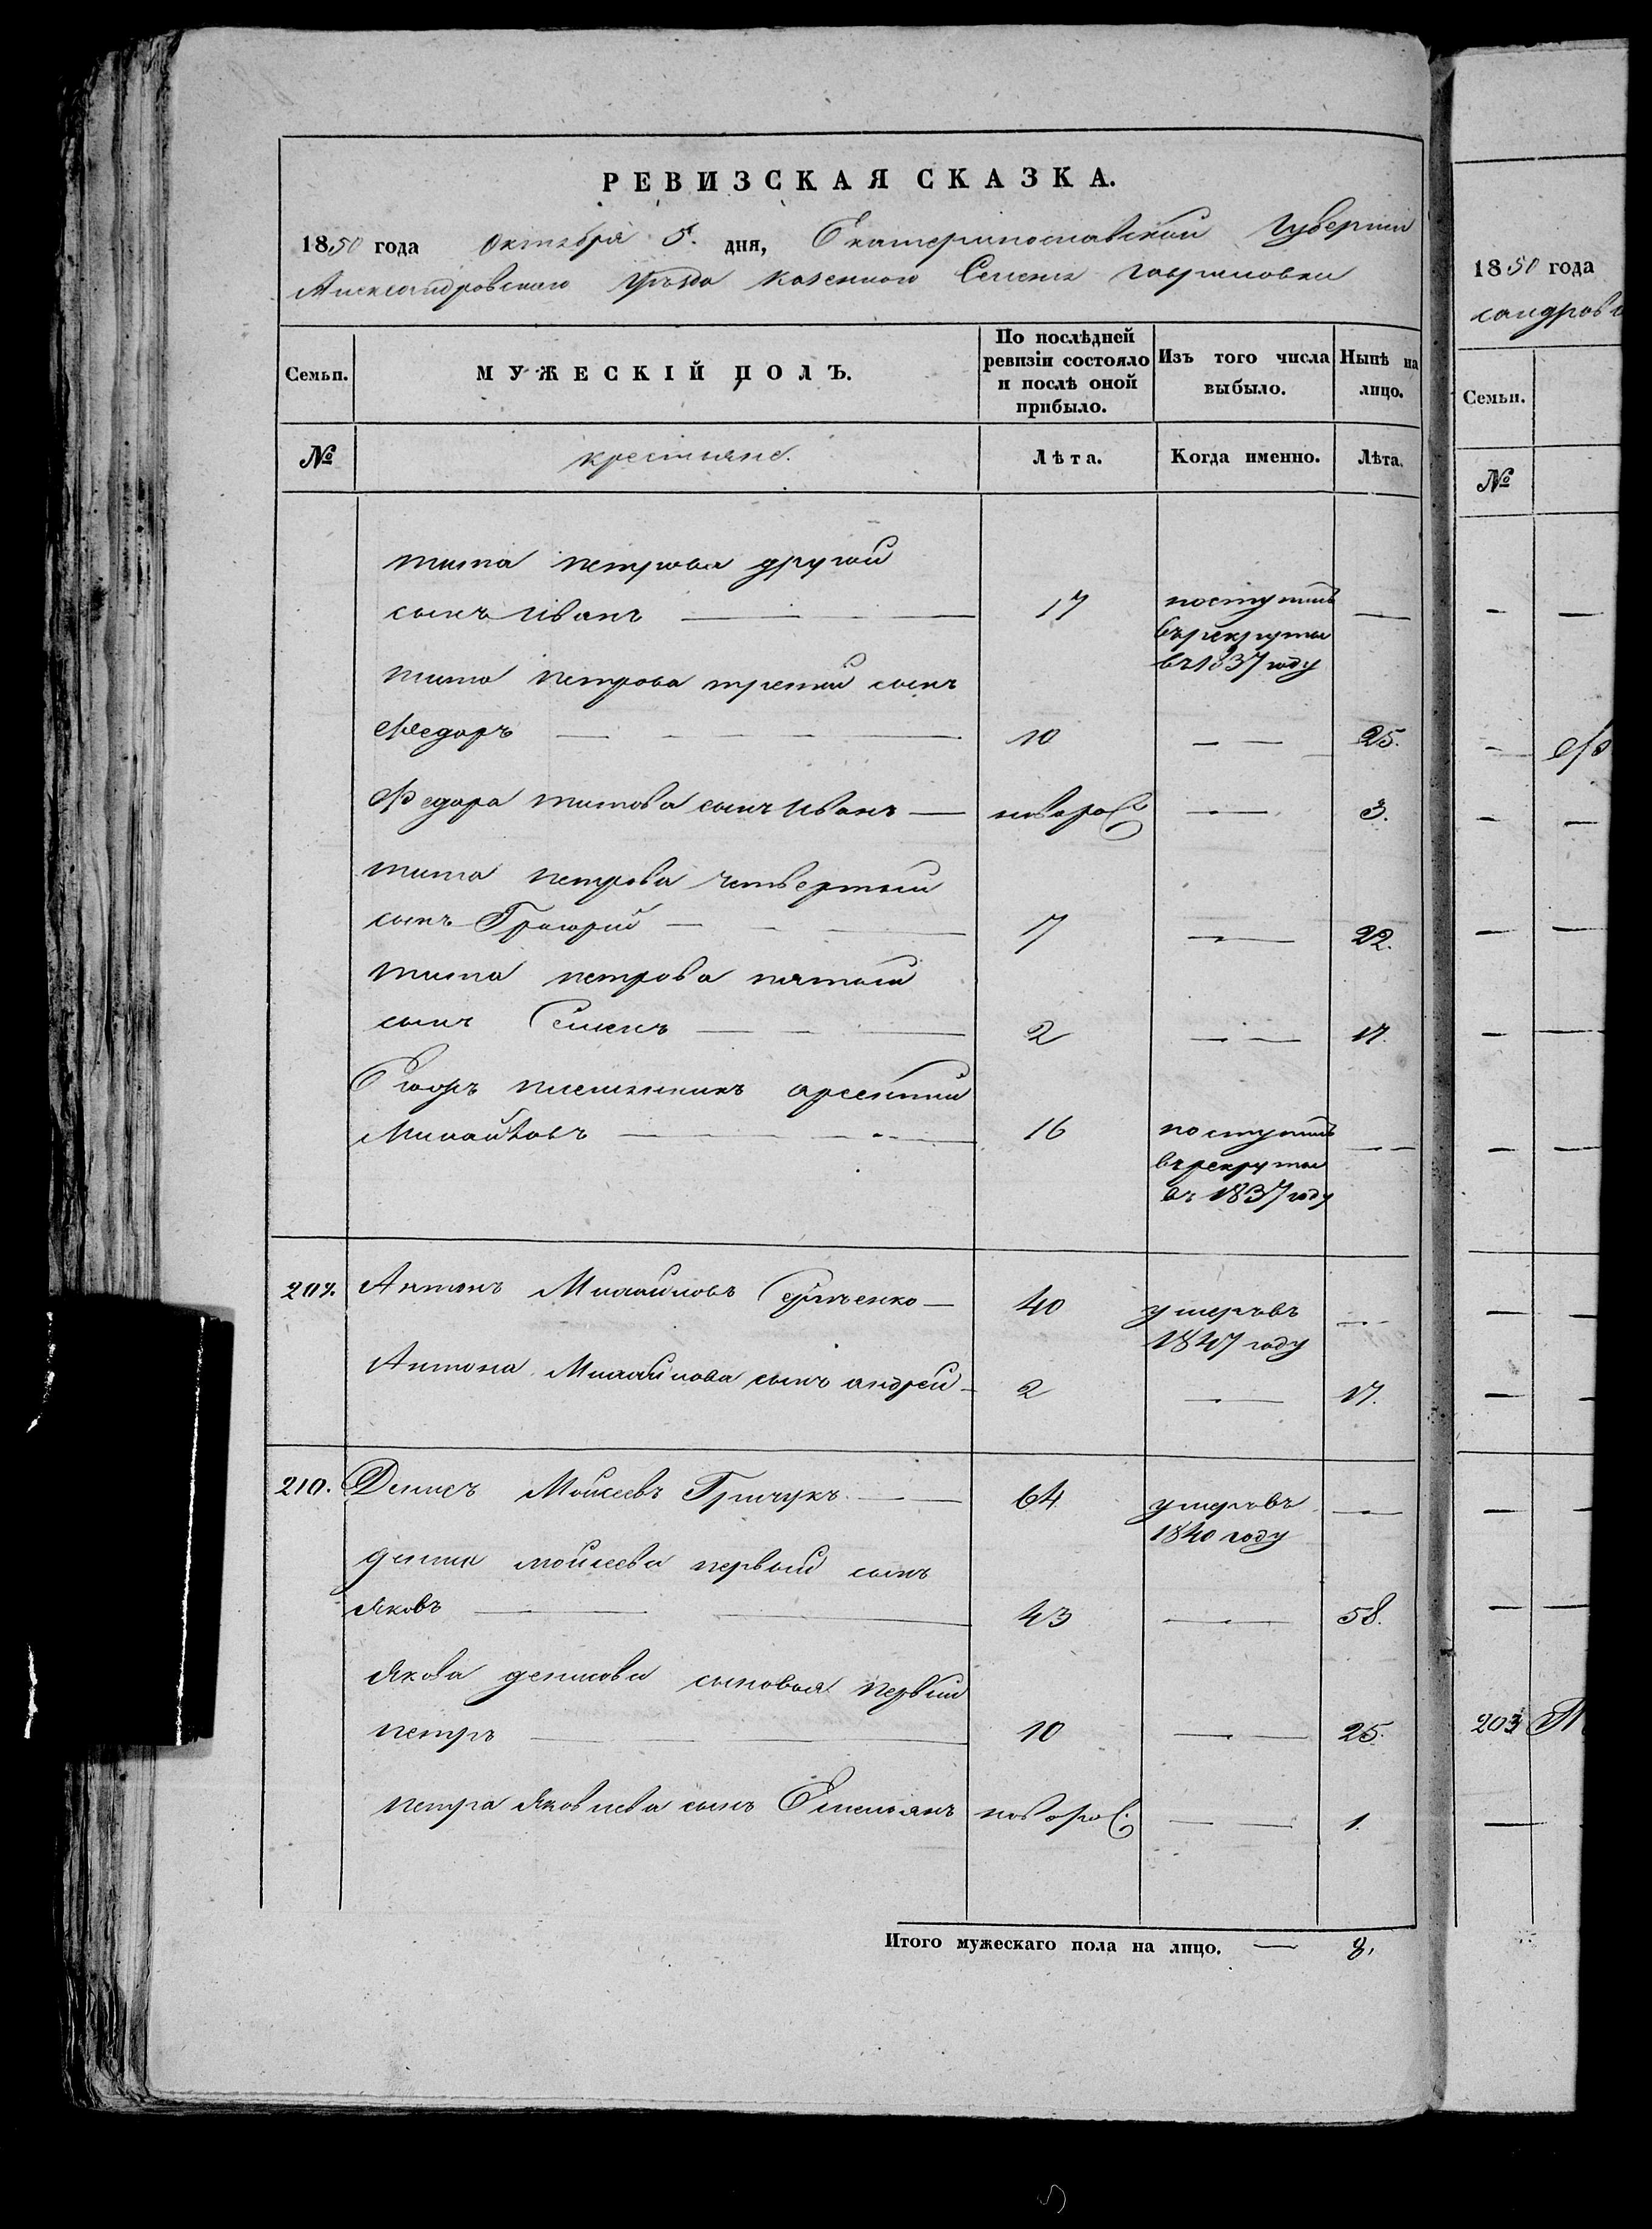 РЕВИЗСКАЯ СКАЗКА.
1850 года Октября 5. дня, Екатеринославской Губернии
Александровского Уезда казенного Селенія Гавриловки
Семьи. МУЖЕСКІЙ ПОЛЪ. По послѣдней ревизіи состояло и послѣ оной прибыло. Изъ того числа выбыло. Нынѣ на лицо.
№ крестьяне. Лѣта. Когда именно. Лѣта.
тита петрова другой
сынъ Иванъ 17 поступилъ
въ рекруты
въ 1837 году
тита петрова третій сынъ
Федоръ 10 25.
Федора титова сынъ Иванъ новорос 3.
тита петрова четвертый
сынъ Григорій 7 22.
тита петрова пятый
сынъ Семенъ 2 17.
Егоръ племянникъ арсентій
Михайловъ 16 поступилъ
въ рекруты
въ 1837 году
Антонъ Михайловъ 40 умеръ въ
1847 году
Антона Михайлова сынъ андрей 2 17.
210. Денисъ Моисеевъ Гричукъ 64 умеръ въ
1840 году
дениса моисеева первый сынъ
Яковъ 43 58.
Якова денисова сыновья первый
петръ 10 25.
петра Яковлева сынъ Емельянъ новорос. 1.
Итого мужескаго пола на лицо. 8.
1850 года
сандровс
Семьи.
№
203